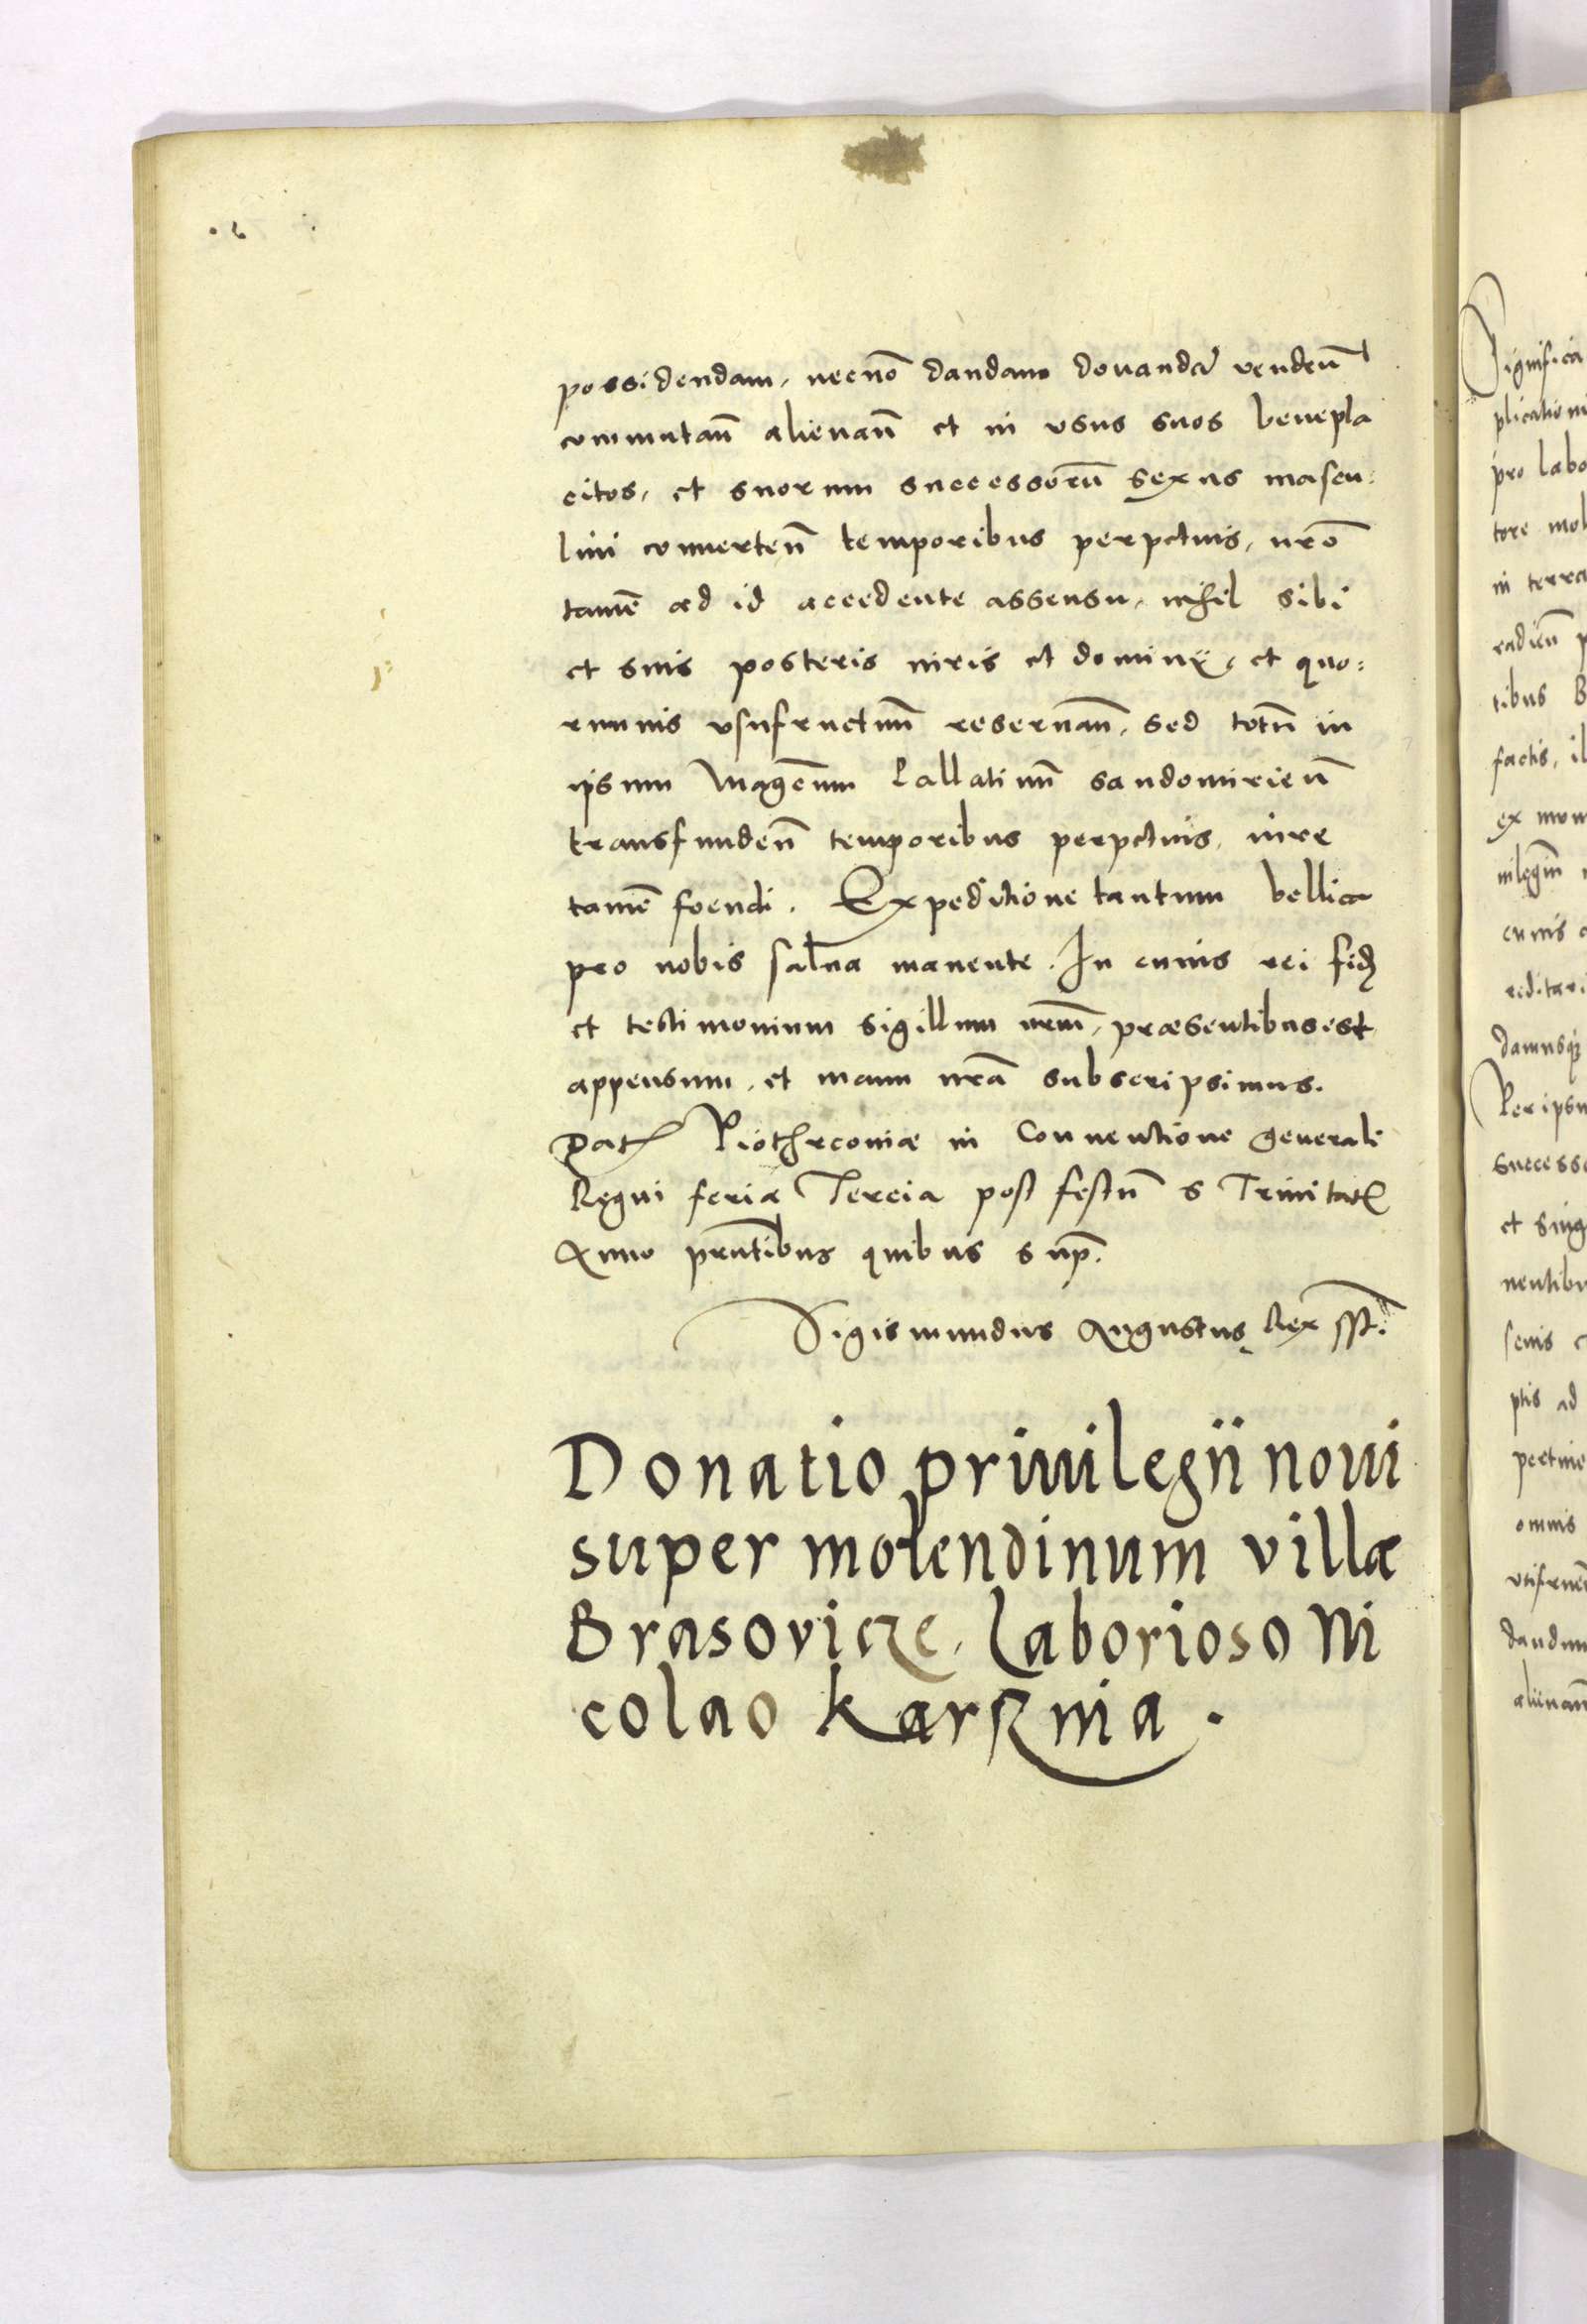 possidendam, necnō dandam donandā vendeñ
commutañ alienañ et in vsus suos benepla
citos, et suorum successorū sexus mascu:
lini conuerteñ temporibus perpetuis, nr̄o
tamē ad id accedente assensu, nihil sibi
et suis posteris iuris et dominij, et quo:
rumuis vsufructuū reseruañ, sed totū in
ipsum Magcum Pallatinū sandomirieñ
transfundeñ temporibus perpetuis, iure
tamē foendi. Expeditione tantum bellica
pro nobis salua manente. In cuius rei fidē
et testimonium sigillum nr̄m, præsentibus est
appensum, et manu nr̄a subscripsimus.
Dat Piothrcouiæ in Conuentione generali
Regni feria Tercia post festū s Trinitatꝭ
Anno pn̄tibus quibus sup.
Sigismundus Augustus Rex sst.
Donatio priuilegii noui
super molendinum villæ
Brasovicze, Laborioso Ni
colao Karznia.
Significa
plicationi
pro labo
tore mol
in terra
radień p
tibus B
factis, il
ex mem
uilegiū
cuius
reditari
damusq;
Per ipsu
successo
et sing
nentibu
senis
ptis ad
pertine
omnis
vtifrueñ
dandum
alienañ